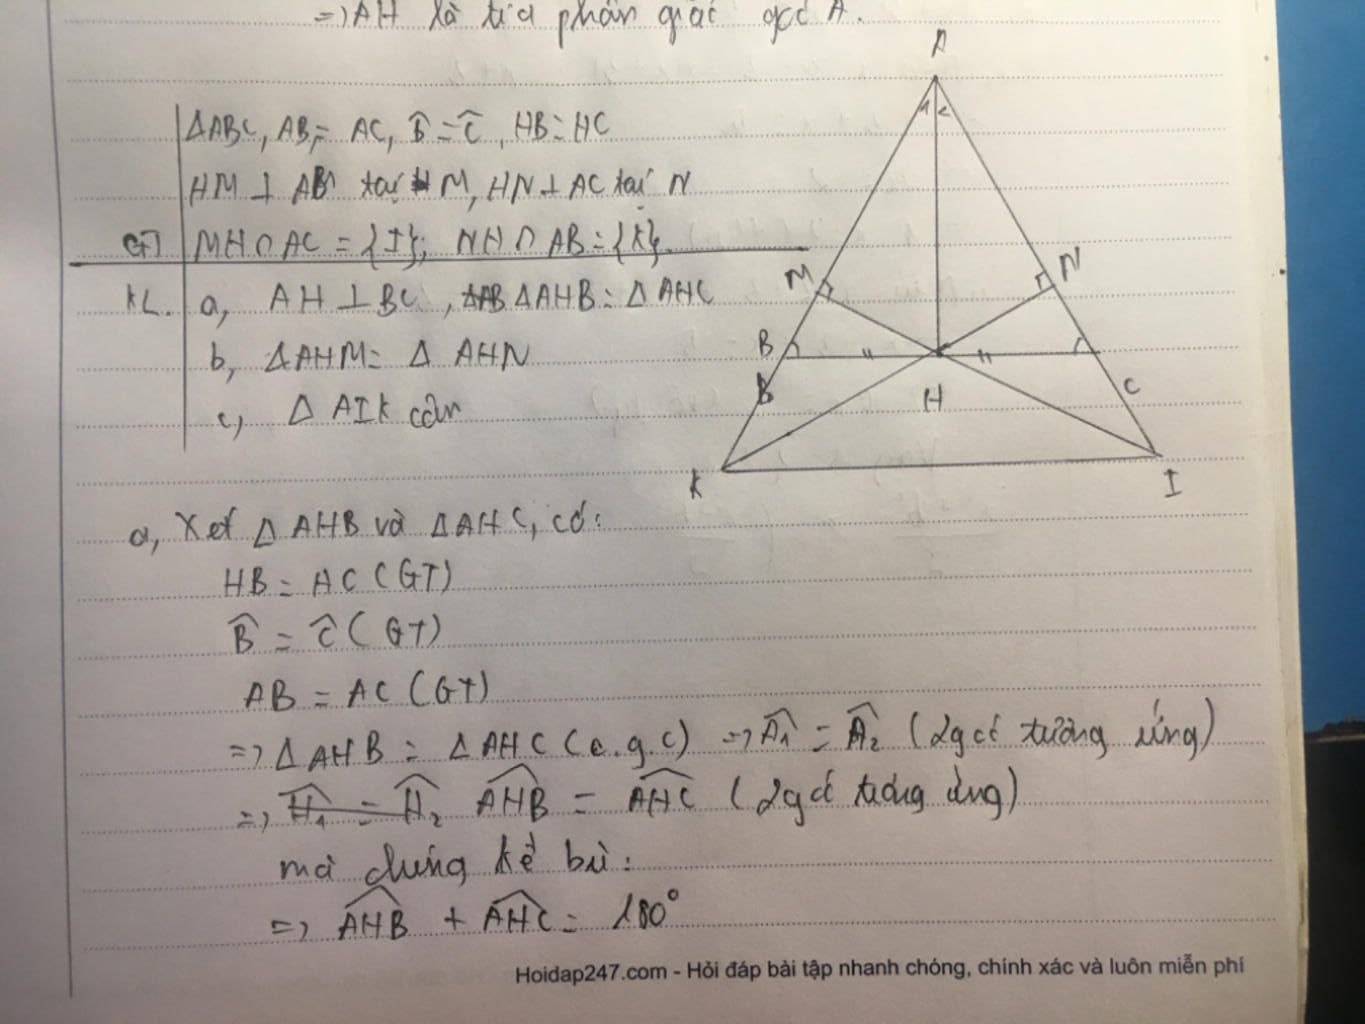 => AH là tia phân giác góc A.
ΔABC, AB = AC, B̂ = Ĉ, HB = HC
HM ⊥ AB tại M, HN ⊥ AC tại N
GT MH ∩ AC = {I}; NH ∩ AB = {K}.
KL. a, AH ⊥ BC, ΔAHB = ΔAHC
b, ΔAHM = Δ AHN
c, Δ AIK cân
A
1 2
M
N
B
B
H
C
K
I
a, Xét Δ AHB và ΔAHC, có:
HB = AC (GT)
B̂ = Ĉ (GT)
AB = AC (GT)
=> Δ AHB = Δ AHC (c.g.c) => Â1 = Â2 (2 góc tương ứng)
=> Ĥ1 = Ĥ2 AHB = AHC (2 góc tương ứng)
mà chúng kề bù:
=> AHB + AHC = 180°
Hoidap247.com - Hỏi đáp bài tập nhanh chóng, chính xác và luôn miễn phí